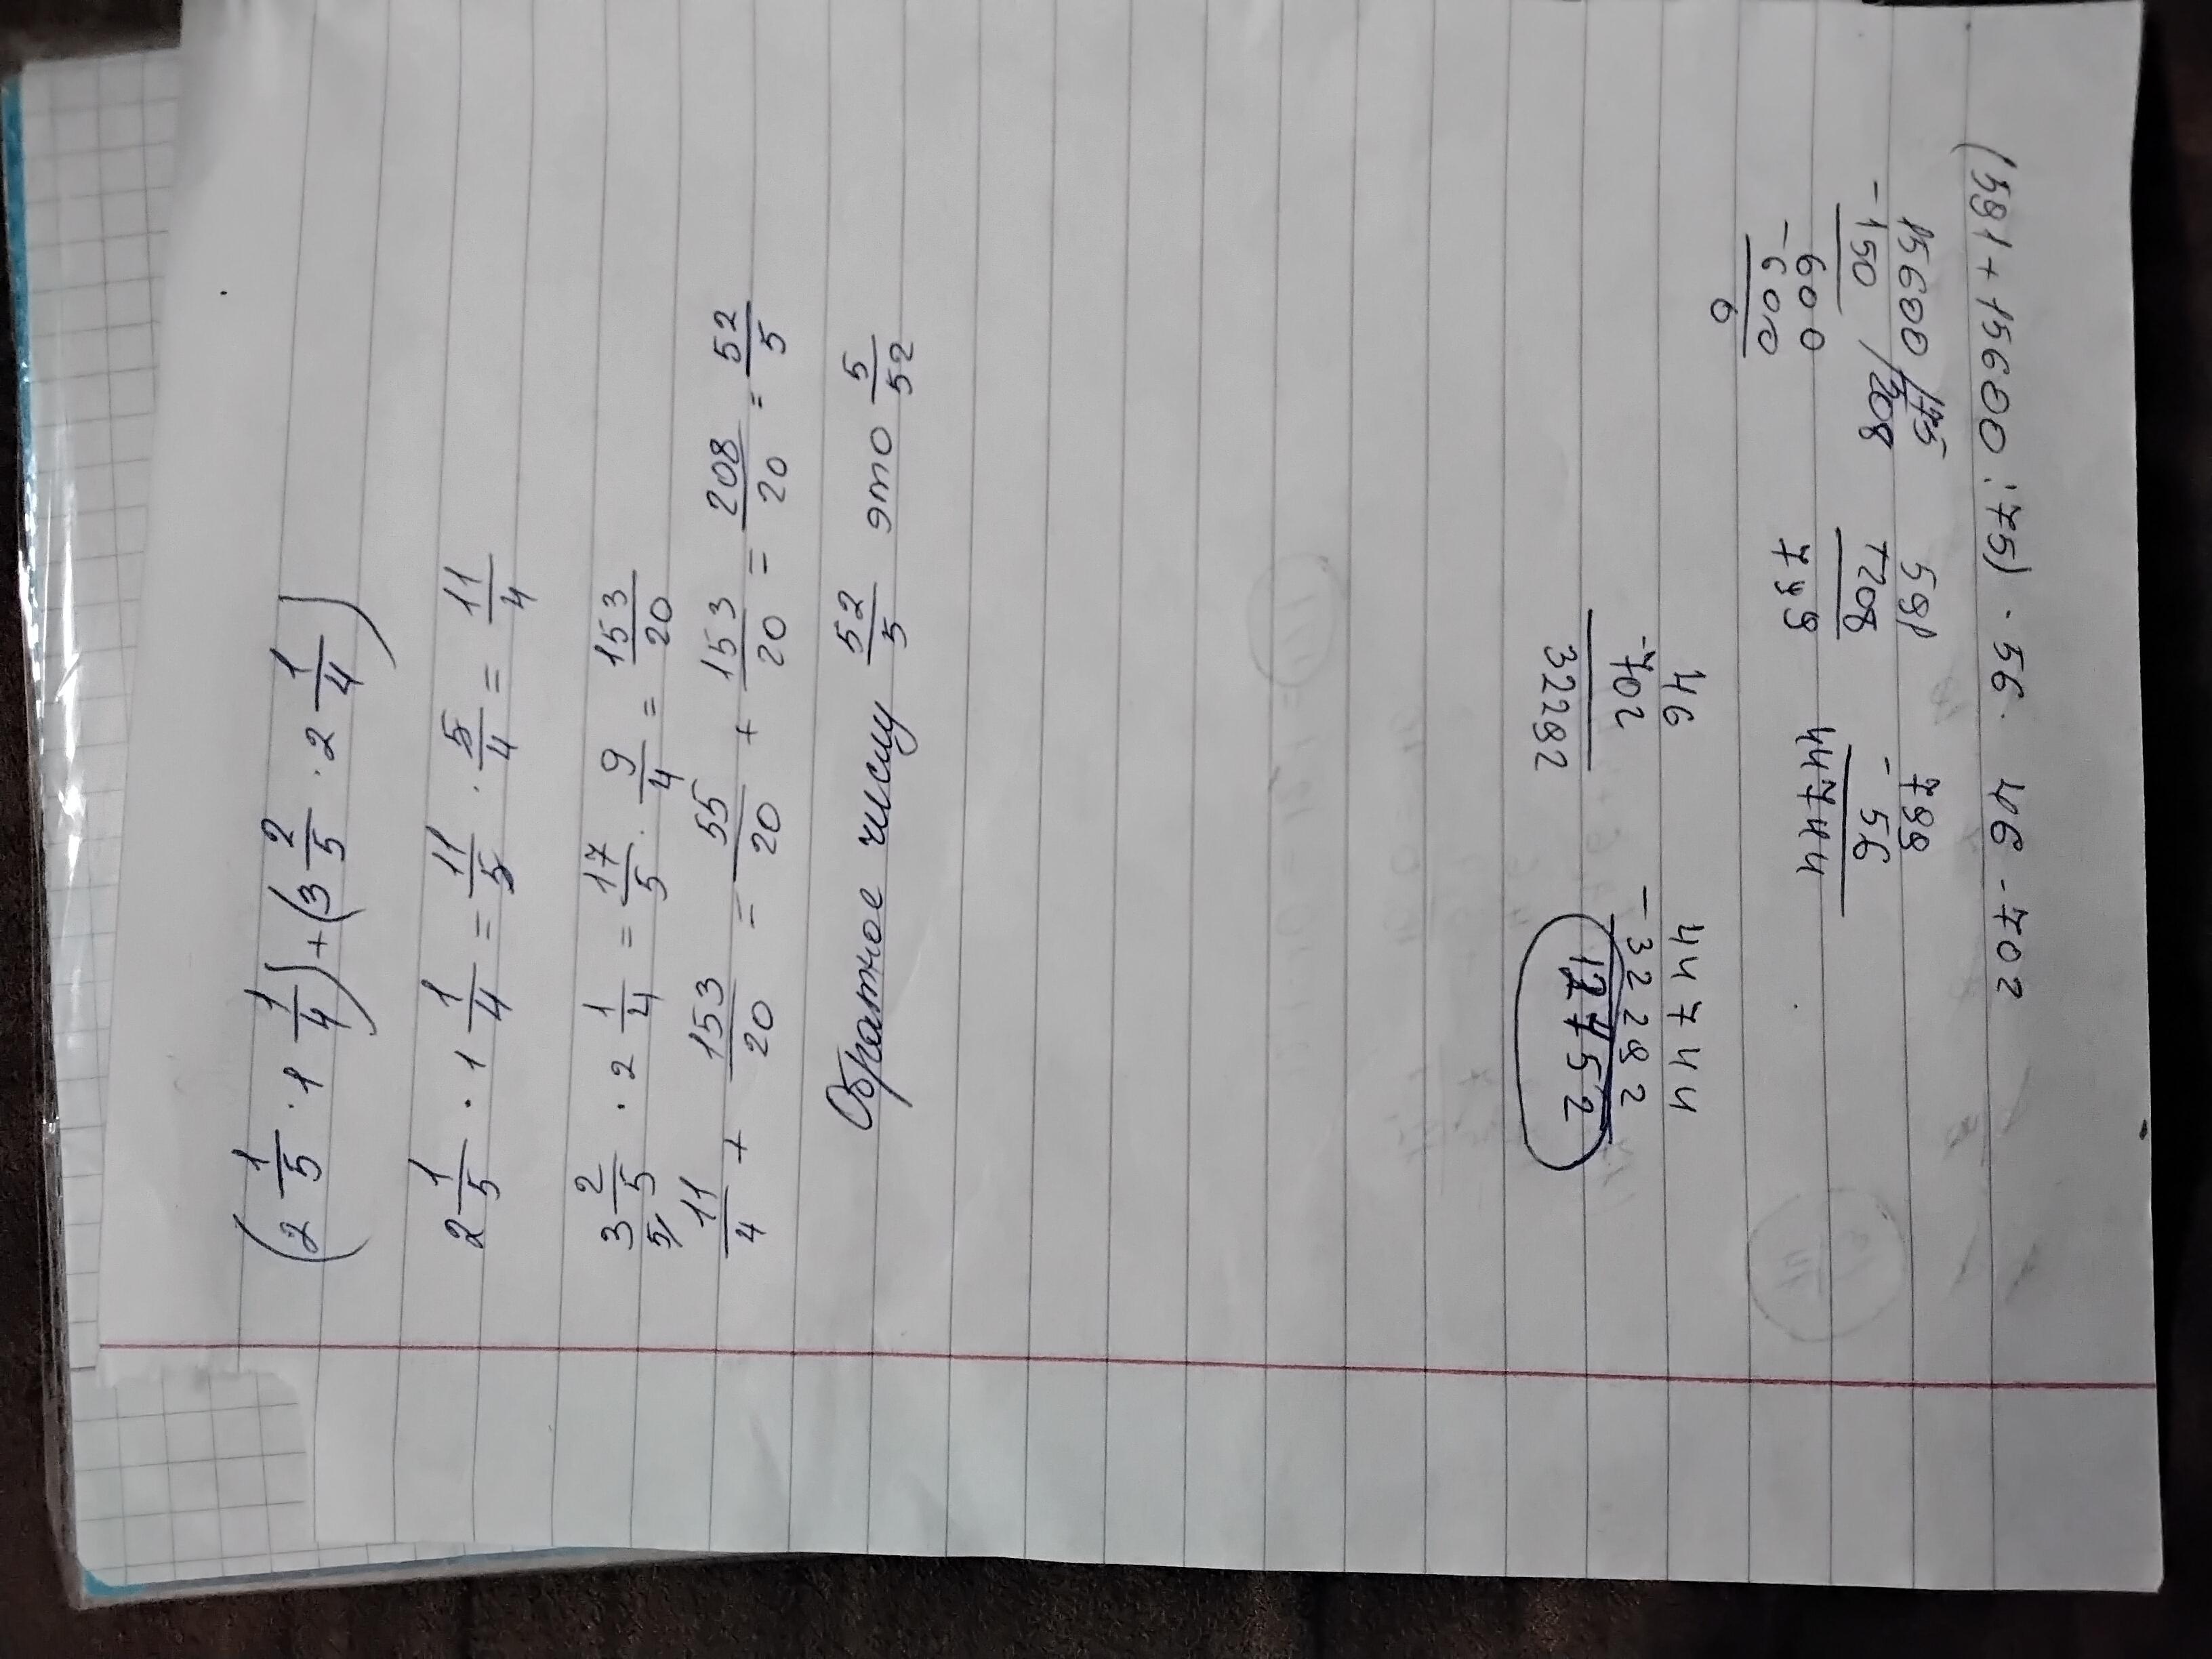 (2 1/5 · 1 1/4) + (3 2/5 · 2 1/4)
2 1/5 · 1 1/4 = 11/5 · 5/4 = 11/4
3 2/5 · 2 1/4 = 17/5 · 9/4 = 153/20
11/4 + 153/20 = 55/20 + 153/20 = 208/20 = 52/5
Обратное числу 52/5 это 5/52
(591 + 15600 : 75) · 56 - 46 · 702
15600 / 75
-150 / 208
600
-600
0
591
+208
799
799
56
44744
46
702
32292
44744
-32292
12452